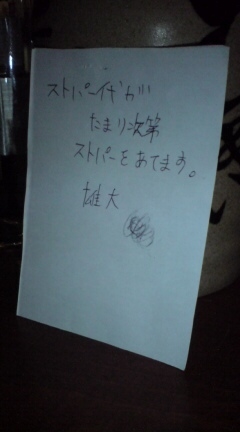 ストパー代が
たまり次第
ストパーをあてます。
雄大